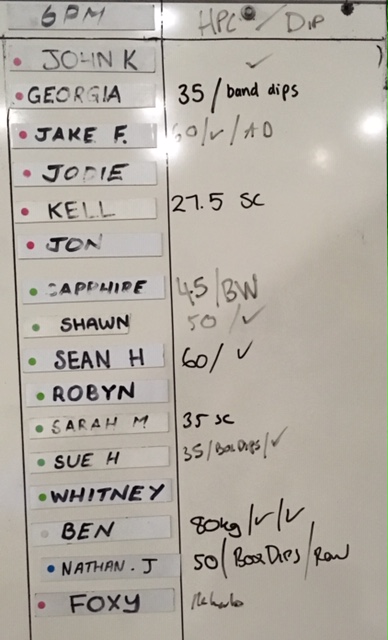 6PM HPC / DIP
JOHN K ✓
GEORGIA 35 / band dips
JAKE F. 60/✓/AD
JODIE
KELL 27.5 SC
JON
SAPPHIRE 45/BW
SHAWN 50 / ✓
SEAN H 60/ ✓
ROBYN
SARAH M 35 SC
SUE H 35/Box Dips/✓
WHITNEY
BEN 80kg/✓/✓
NATHAN. J 50/Box Dips/Row
FOXY